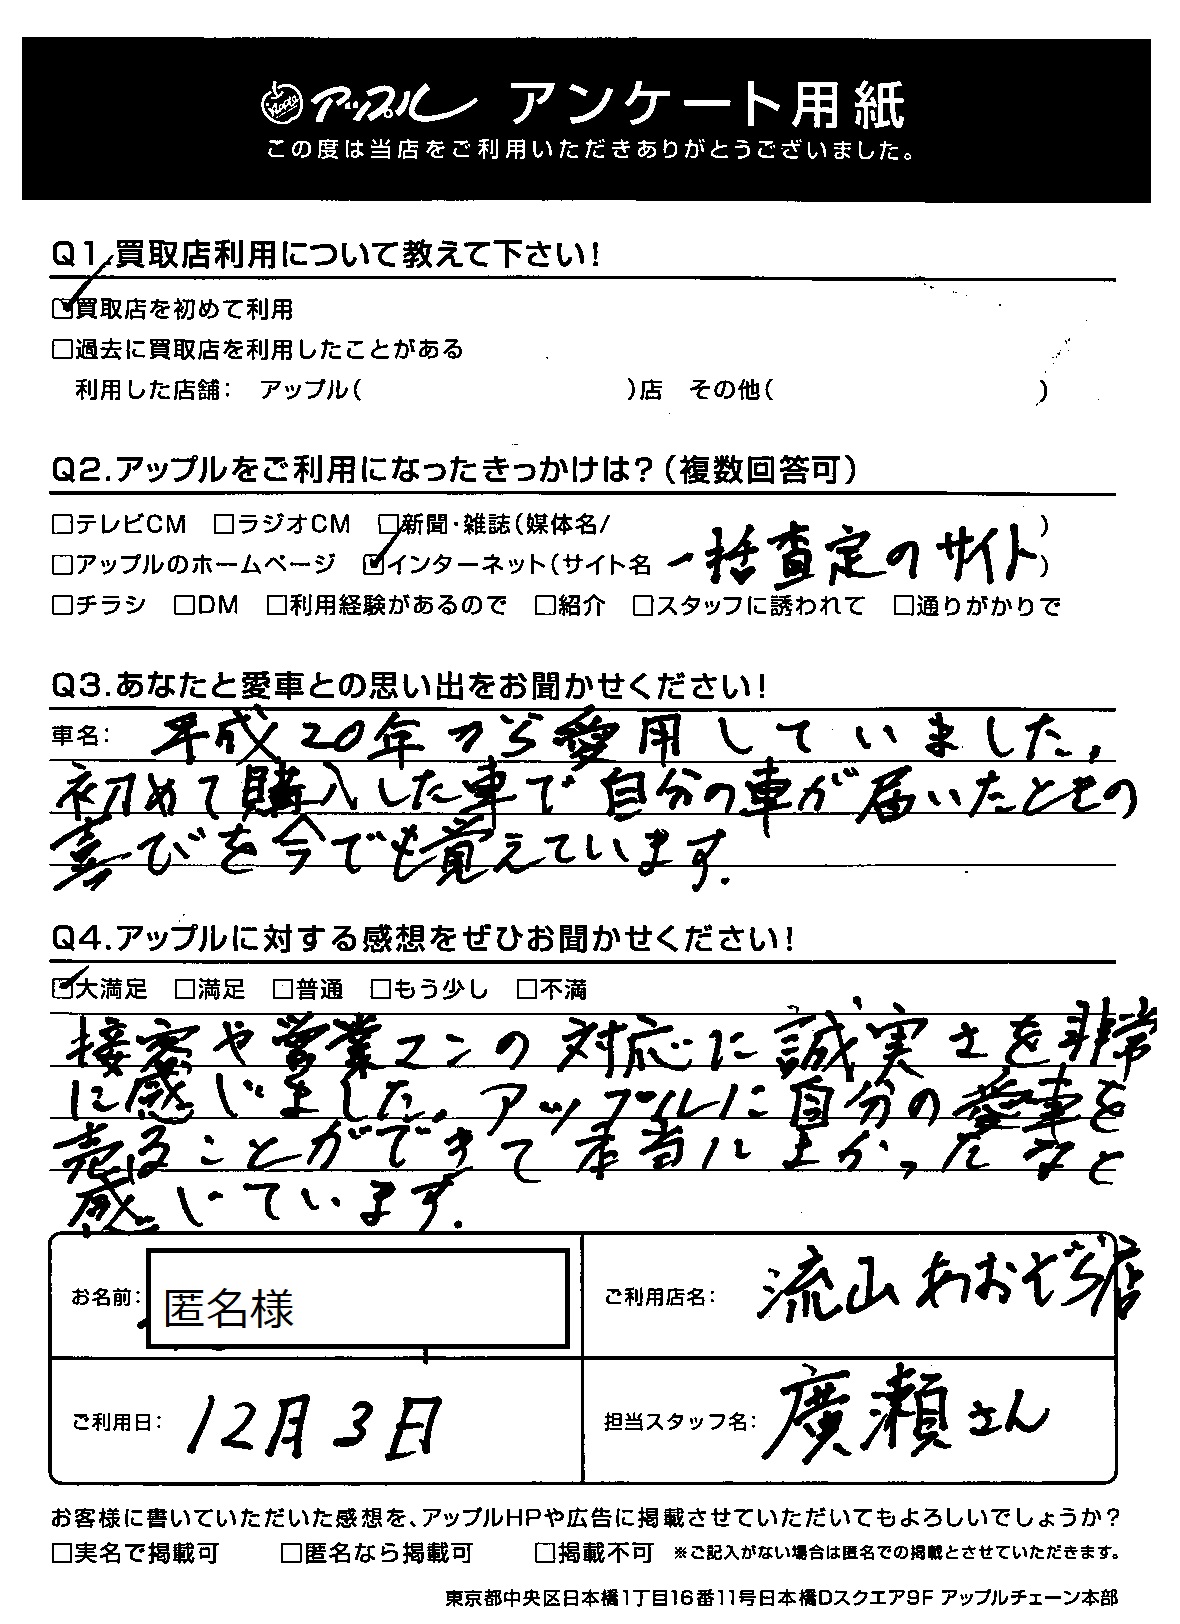 Apple アップル アンケート用紙
この度は当店をご利用いただきありがとうございました。
Q1.買取店利用について教えて下さい!
☑買取店を初めて利用
□過去に買取店を利用したことがある
利用した店舗: アップル( )店 その他( )
Q2.アップルをご利用になったきっかけは?(複数回答可)
□テレビCM □ラジオCM □新聞・雑誌(媒体名/ )
□アップルのホームページ ☑インターネット(サイト名 一括査定のサイト)
□チラシ □DM □利用経験があるので □紹介 □スタッフに誘われて □通りがかりで
Q3.あなたと愛車との思い出をお聞かせください!
車名: 平成20年から愛用していました,
初めて購入した車で自分の車が届いたときの
喜びを今でも覚えています.
Q4.アップルに対する感想をぜひお聞かせください!
☑大満足 □満足 □普通 □もう少し □不満
接客や営業マンの対応に誠実さを非常
に感じました. アップルに自分の愛車を
売ることができて本当に良かったなと
感じています.
お名前: 匿名様
ご利用店名: 流山おおぞら店
ご利用日: 12月3日
担当スタッフ名: 廣瀬さん
お客様に書いていただいた感想を、アップルHPや広告に掲載させていただいてもよろしいでしょうか?
□実名で掲載可 □匿名なら掲載可 □掲載不可 ※ご記入がない場合は匿名での掲載とさせていただきます。
東京都中央区日本橋1丁目16番11号日本橋Dスクエア9F アップルチェーン本部